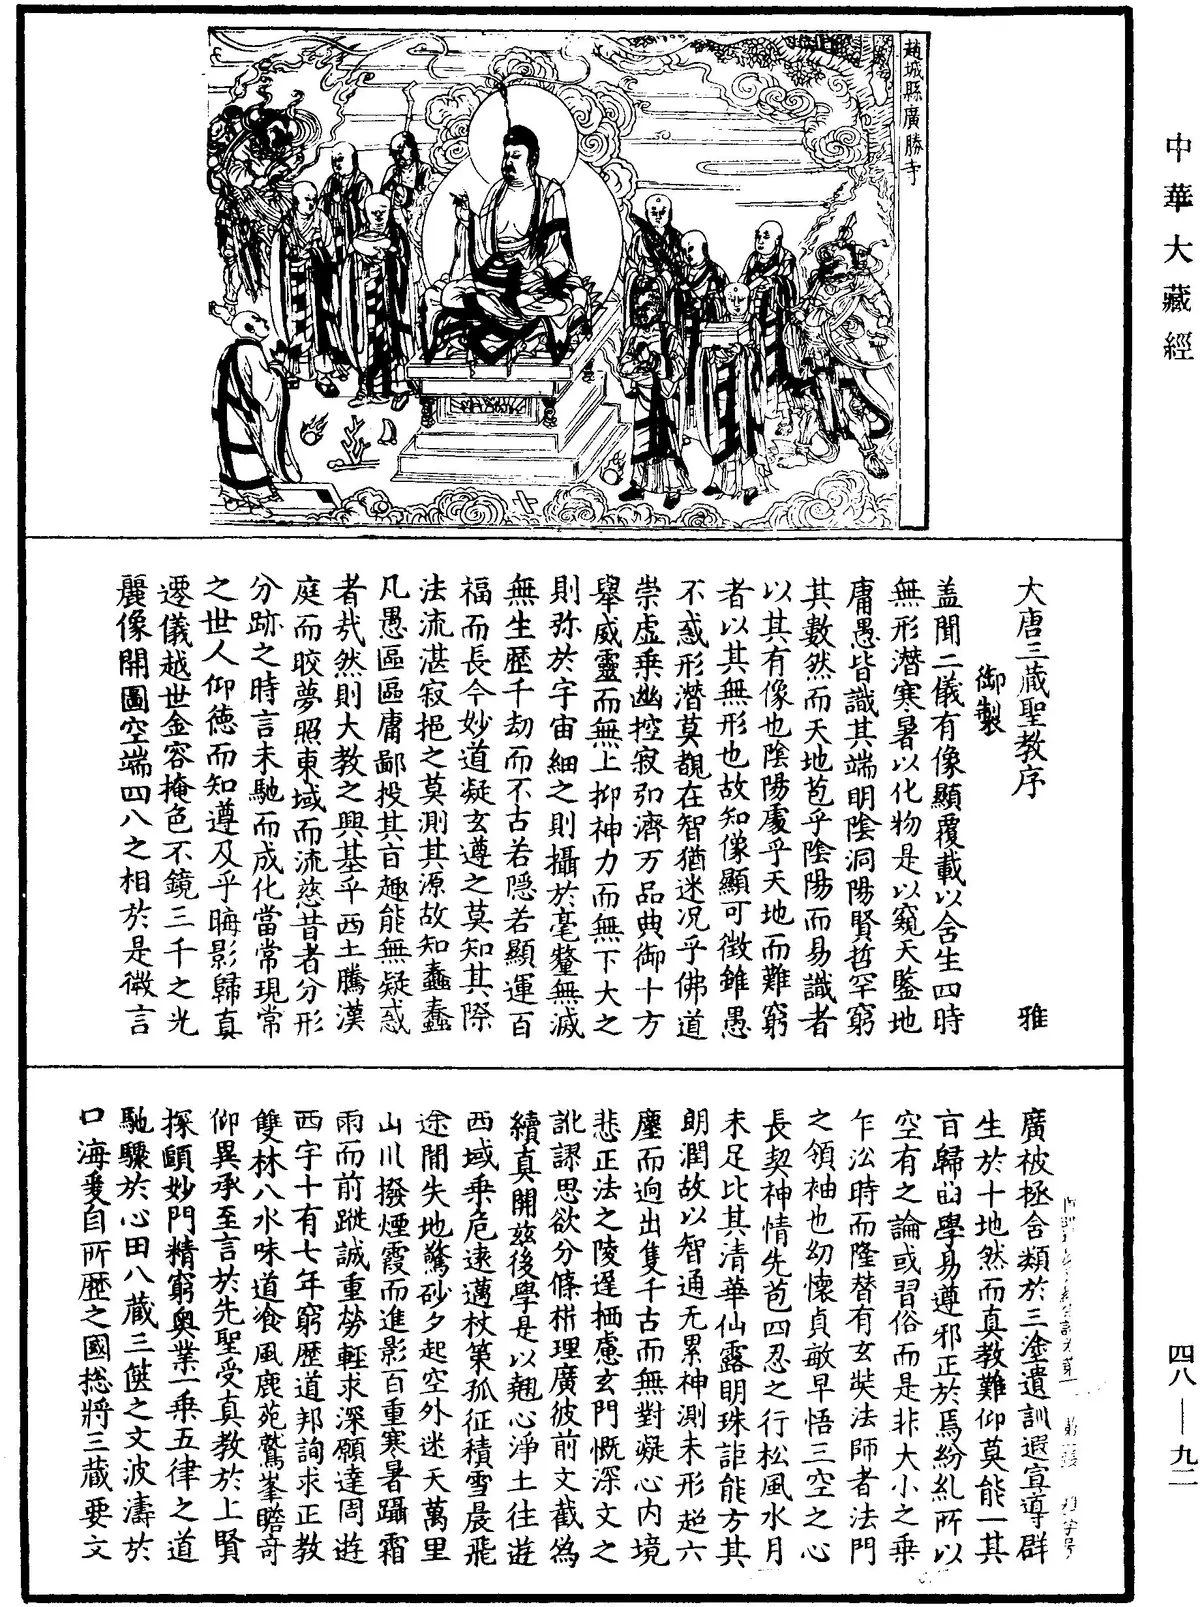 中華大藏經
趙城縣廣勝寺
大唐三藏聖教序 雅
御製
盖聞二儀有像顯覆載以含生四時
無形潛寒暑以化物是以窺天鑒地
庸愚皆識其端明陰洞陽賢哲罕窮
其數然而天地苞乎陰陽而易識者
以其有像也陰陽處乎天地而難窮
者以其無形也故知像顯可徵雖愚
不惑形潛莫覩在智猶迷况乎佛道
崇虛乘幽控寂弘濟万品典御十方
舉威靈而無上抑神力而無下大之
則弥於宇宙細之則攝於毫氂無滅
無生歷千劫而不古若隱若顯運百
福而長今妙道凝玄遵之莫知其際
法流湛寂挹之莫測其源故知蠢蠢
凡愚區區庸鄙投其旨趣能無疑惑
者㢤然則大教之興基乎西土騰漢
庭而皎夢照東域而流慈昔者分形
分跡之時言未馳而成化當常現常
之世人仰德而知遵及乎晦影歸真
遷儀越世金容掩色不鏡三千之光
麗像開圖空端四八之相於是微言
廣被拯含類於三塗遺訓遐宣導群
生於十地然而真教難仰莫能一其
旨歸曲學易遵邪正於焉紛糺所以
空有之論或習俗而是非大小之乘
乍沿時而隆替有玄奘法師者法門
之領袖也幼懷貞敏早悟三空之心
長契神情先苞四忍之行松風水月
未足比其清華仙露明珠詎能方其
朗潤故以智通无累神測未形超六
塵而逈出隻千古而無對凝心內境
悲正法之陵遲栖慮玄門慨深文之
訛謬思欲分條析理廣彼前文截偽
續真開兹後學是以翹心淨土往遊
西域乘危遠邁杖策孤征積雪晨飛
途間失地驚砂夕起空外迷天萬里
山川撥煙霞而進影百重寒暑躡霜
雨而前蹤誠重勞輕求深願達周遊
西宇十有七年窮歷道邦詢求正教
雙林八水味道飡風鹿苑鷲峯瞻奇
仰異承至言於先聖受真教於上賢
探賾妙門精窮奥業一乘五律之道
馳驟於心田八藏三篋之文波濤於
口海爰自所歷之國捴將三藏要文
四八—九二